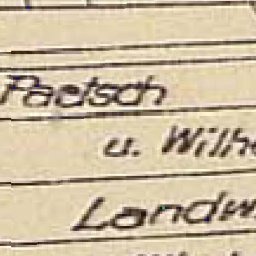 Paetsch
u. Wilhe
Landw